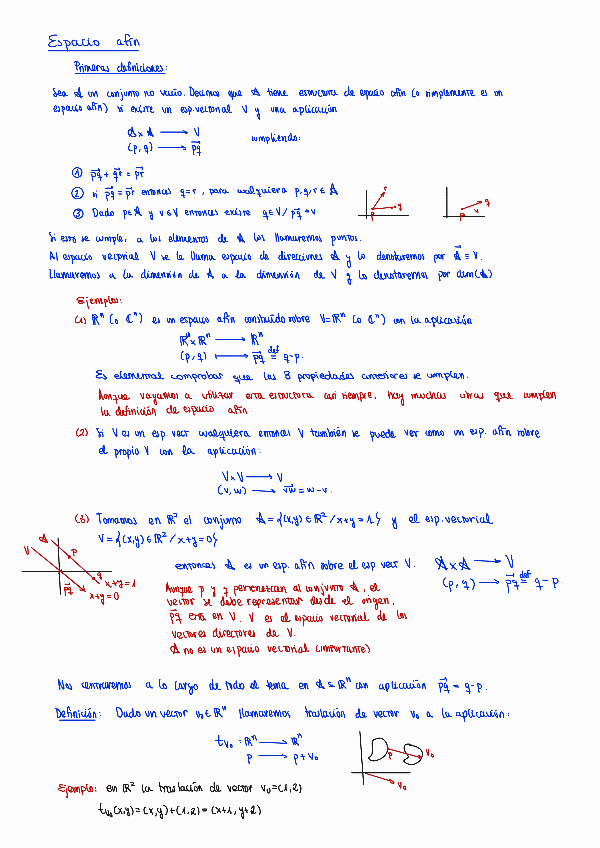 Espacio afín
Primeras definiciones:
Sea A un conjunto no vacío. Decimos que A tiene estructura de espacio afín (o simplemente es un
espacio afín) si existe un esp. vectorial V y una aplicación
A × A ⟶ V
(p, q) ⟶ p⃗q cumpliendo:
① p⃗q + q⃗r = p⃗r
② si p⃗q = p⃗r entonces q = r, para cualquiera p, q, r ∈ A
③ Dado p ∈ A y v ∈ V entonces existe q ∈ V / p⃗q = v
r
p
q
p
v
q
Si esto se cumple, a los elementos de A los llamaremos puntos.
Al espacio vectorial V se le llama espacio de direcciones A y lo denotaremos por A⃗ = V.
Llamaremos a la dimensión de A a la dimensión de V y lo denotaremos por dim(A)
Ejemplos:
(1) ℝⁿ (o ℂⁿ) es un espacio afín construido sobre V=ℝⁿ (o ℂⁿ) con la aplicación
ℝⁿ × ℝⁿ ⟶ ℝⁿ
(p, q) ⟼ p⃗q def= q-p.
Es elemental comprobar que las 3 propiedades anteriores se cumplen.
Aunque vayamos a utilizar esta estructura casi siempre, hay muchas otras que cumplen
la definición de espacio afín.
(2) Si V es un esp. vect cualquiera entonces V también se puede ver como un esp. afín sobre
el propio V con la aplicación:
V × V ⟶ V
(v, w) ⟶ v⃗w = w-v.
(3) Tomamos en ℝ² el conjunto A = {(x,y) ∈ ℝ² / x+y = 1} y el esp. vectorial
V = {(x,y) ∈ ℝ² / x+y = 0}
A
V
p
q
p⃗q
x+y=1
x+y=0
entonces A es un esp. afín sobre el esp vect V.
A × A ⟶ V
(p, q) ⟶ p⃗q def= q-p.
Aunque p y q pertenezcan al conjunto A, el
vector se debe representar desde el origen.
p⃗q está en V. V es el espacio vectorial de los
vectores directores de V.
A no es un espacio vectorial (importante)
Nos centraremos a lo largo de todo el tema en A = ℝⁿ con aplicación p⃗q = q-p.
Definición: Dado un vector v₀ ∈ ℝⁿ llamaremos traslación de vector v₀ a la aplicación:
t_v₀ : ℝⁿ ⟶ ℝⁿ
p ⟶ p+v₀
p
v₀
v₀
Ejemplo: en ℝ² la traslación de vector v₀=(1,2)
t_v₀(x,y) = (x,y)+(1,2) = (x+1, y+2)